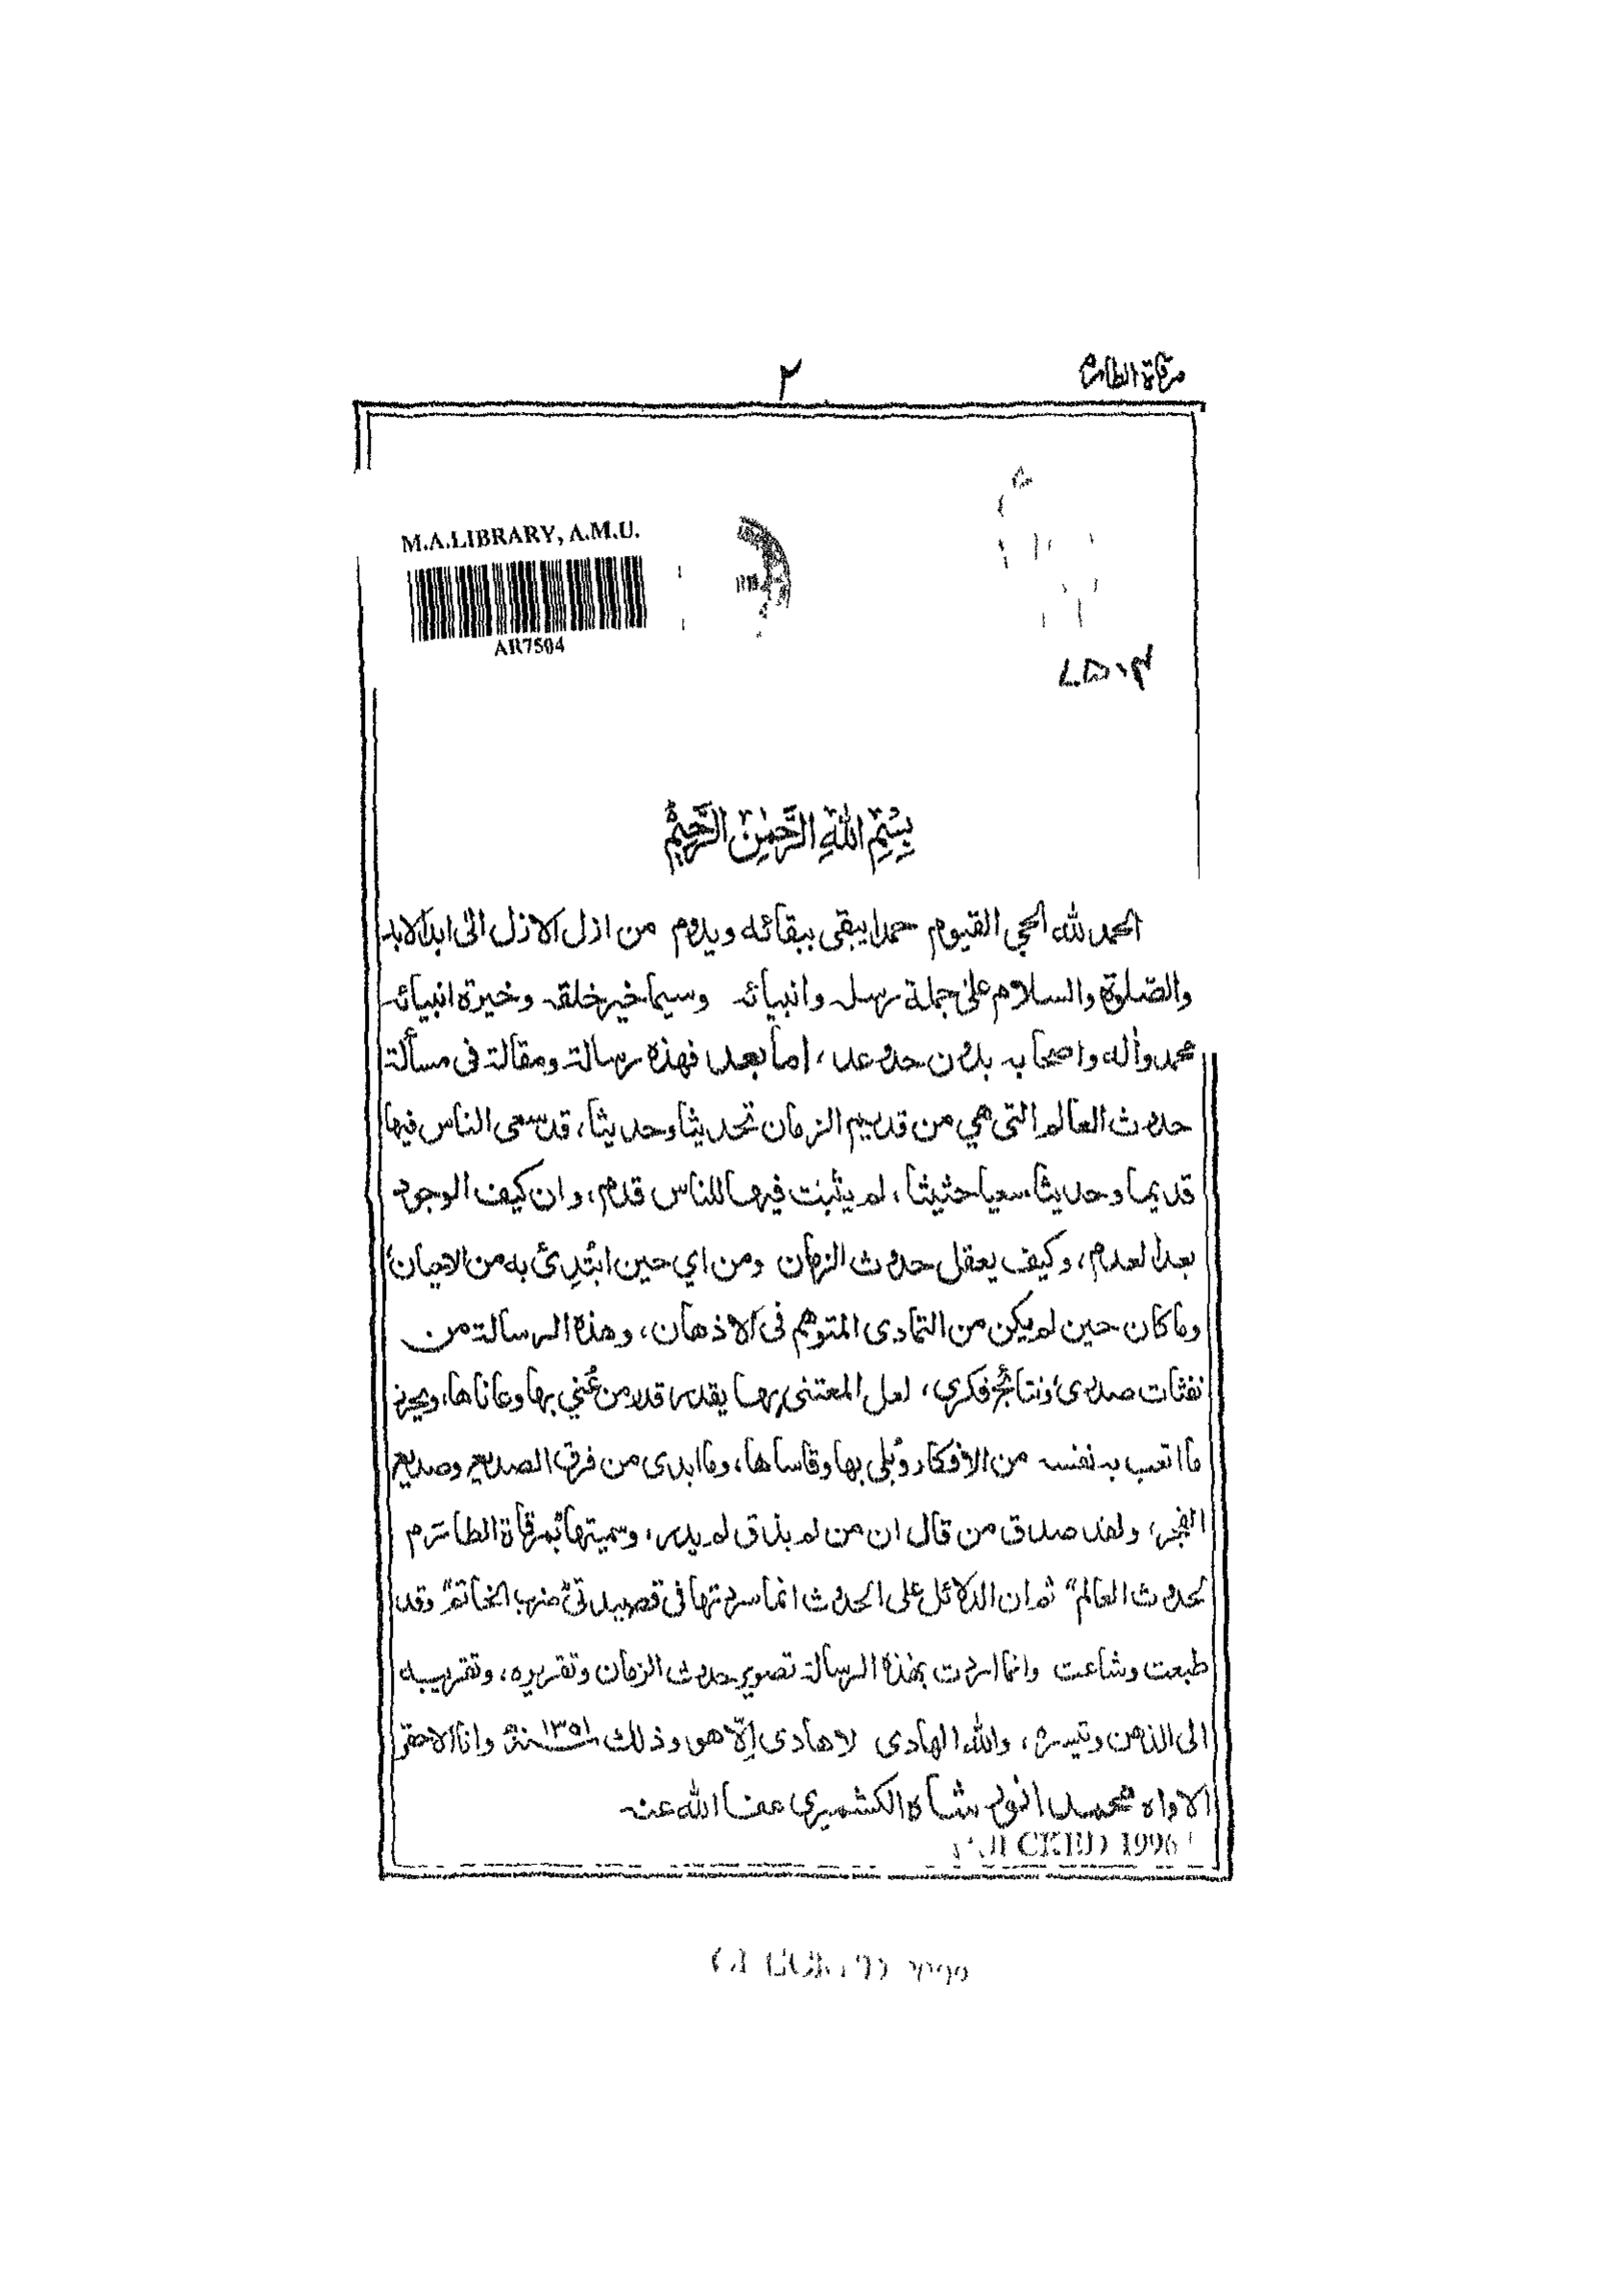 مرقاة الطارم
٢
M.A.LIBRARY, A.M.U.
AR7504
٧٥٠٤
بِسْمِ اللّٰهِ الرَّحْمٰنِ الرَّحِيْمِ
الحمد لله الحي القيوم حمدا يبقى ببقائه ويدوم من ازل الازل الى ابد الابد
والصّلوة والسلام على جملة رسله وانبيائه وسيما خير خلقه وخيرة انبيائه
محمد واٰله واصحابه بدون حد وعد، اما بعد فهذه رسالة ومقالة فى مسألة
حدوث العالم التى هي من قديم الزمان تحديثا وحديثا، قد سعى الناس فيها
قديما وحديثا سعيا حثيثا، لم يثبت فيها للناس قدم، وان كيف الوجود
بعد العدم، وكيف يعقل حدوث الزمان ومن اي حين ابتُدِئ به من الاحيان،
وما كان حين لم يكن من التمادى المتوهم فى الاذهان، وهذه الرسالة من
نفثات صدرى ونتائج فكرى، لعل المعتنى بها يقدر قدر من عُني بها وعاناها، ويحرز
ما اتعب به نفسه من الافكار وبُلي بها وقاساها، وما ابدى من فرق الصديع وصديع
الفجر، ولقد صدق من قال ان من لم يذق لم يدر، وسميتها بمرقاة الطارم
لحدوث العالم" ثم ان الدلائل على الحدوث انما سردتها فى قصيدتى ضرب الخاتم" وقد
طبعت وشاعت وانما اردت بهذه الرسالة تصوير حدوث الزمان وتقريره، وتقريبه
الى الذهن وتيسيره، والله الهادى لا هادى إلّا هو وذلك سنة ١٣٥١ وانا الاحقر
الاواه محمد انور شاه الكشميرى عفا الله عنه
CKED 1996